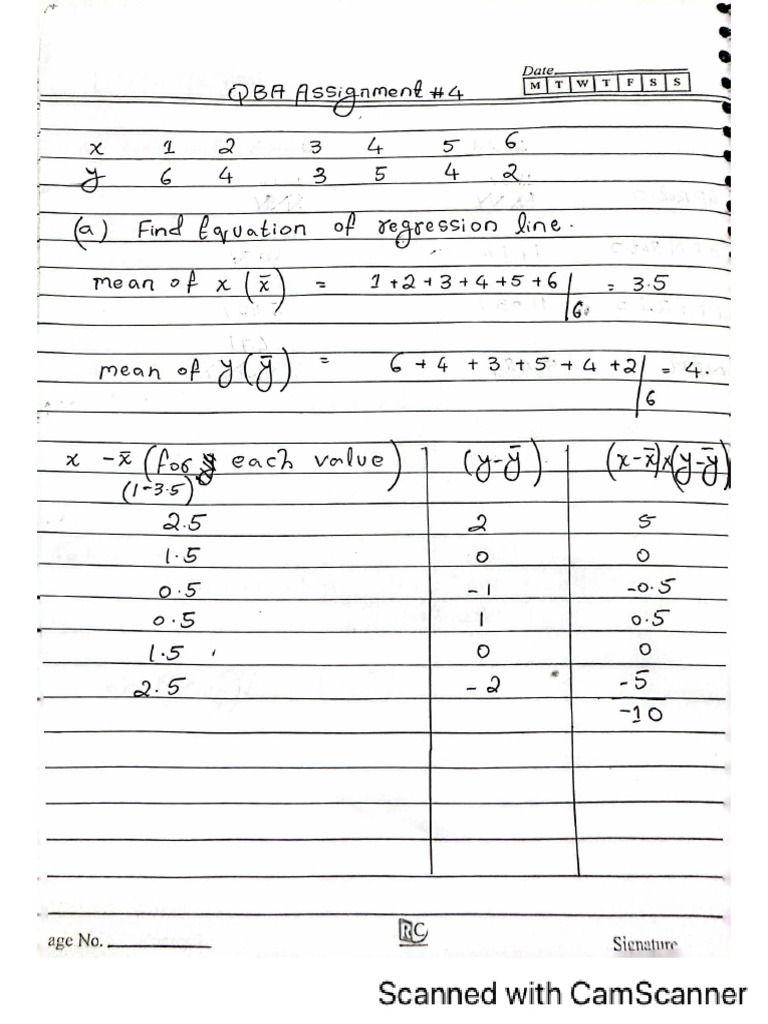 Date
QBA Assignment #4 M T W T F S S
x 1 2 3 4 5 6
y 6 4 3 5 4 2
(a) Find Equation of regression line.
mean of x (x̄) = 1+2+3+4+5+6/6 = 3.5
mean of y (ȳ) = 6+4+3+5+4+2/6 = 4.
x - x̄ (for each value) (y-ȳ) (x-x̄)×(y-ȳ)
(1-3.5)
2.5 2 5
1.5 0 0
0.5 -1 -0.5
0.5 1 0.5
1.5 0 0
2.5 -2 -5
-10
age No. RC Signature
Scanned with CamScanner